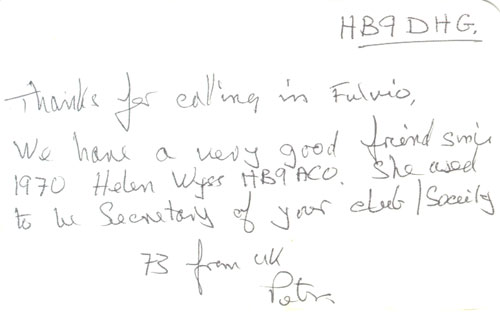 HB9DHG.
Thanks for calling in Fulvio,
We have a very good friend since
1970 Helen Wyss HB9ACO. She used
to be Secretary of your club/Society
73 from UK